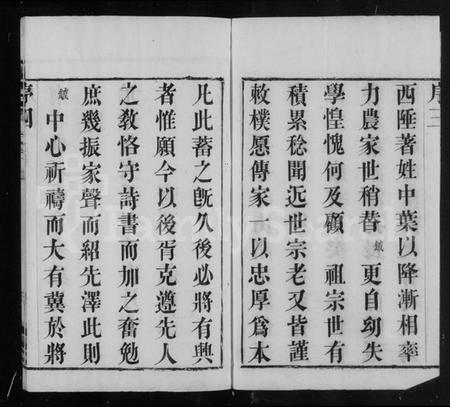 序三
西陲著姓中葉以降漸相率
力農家世稍替 更自幼失
學惶愧何及顧 祖宗世有
積累稔聞近世宗老又皆謹
敕樸愿傳家一以忠厚爲本
凡此蓄之旣久後必將有興
者惟願今以後胥克遵先人
之敎恪守詩書而加之奮勉
庶幾振家聲而紹先澤此則
中心祈禱而大有冀於將
序四